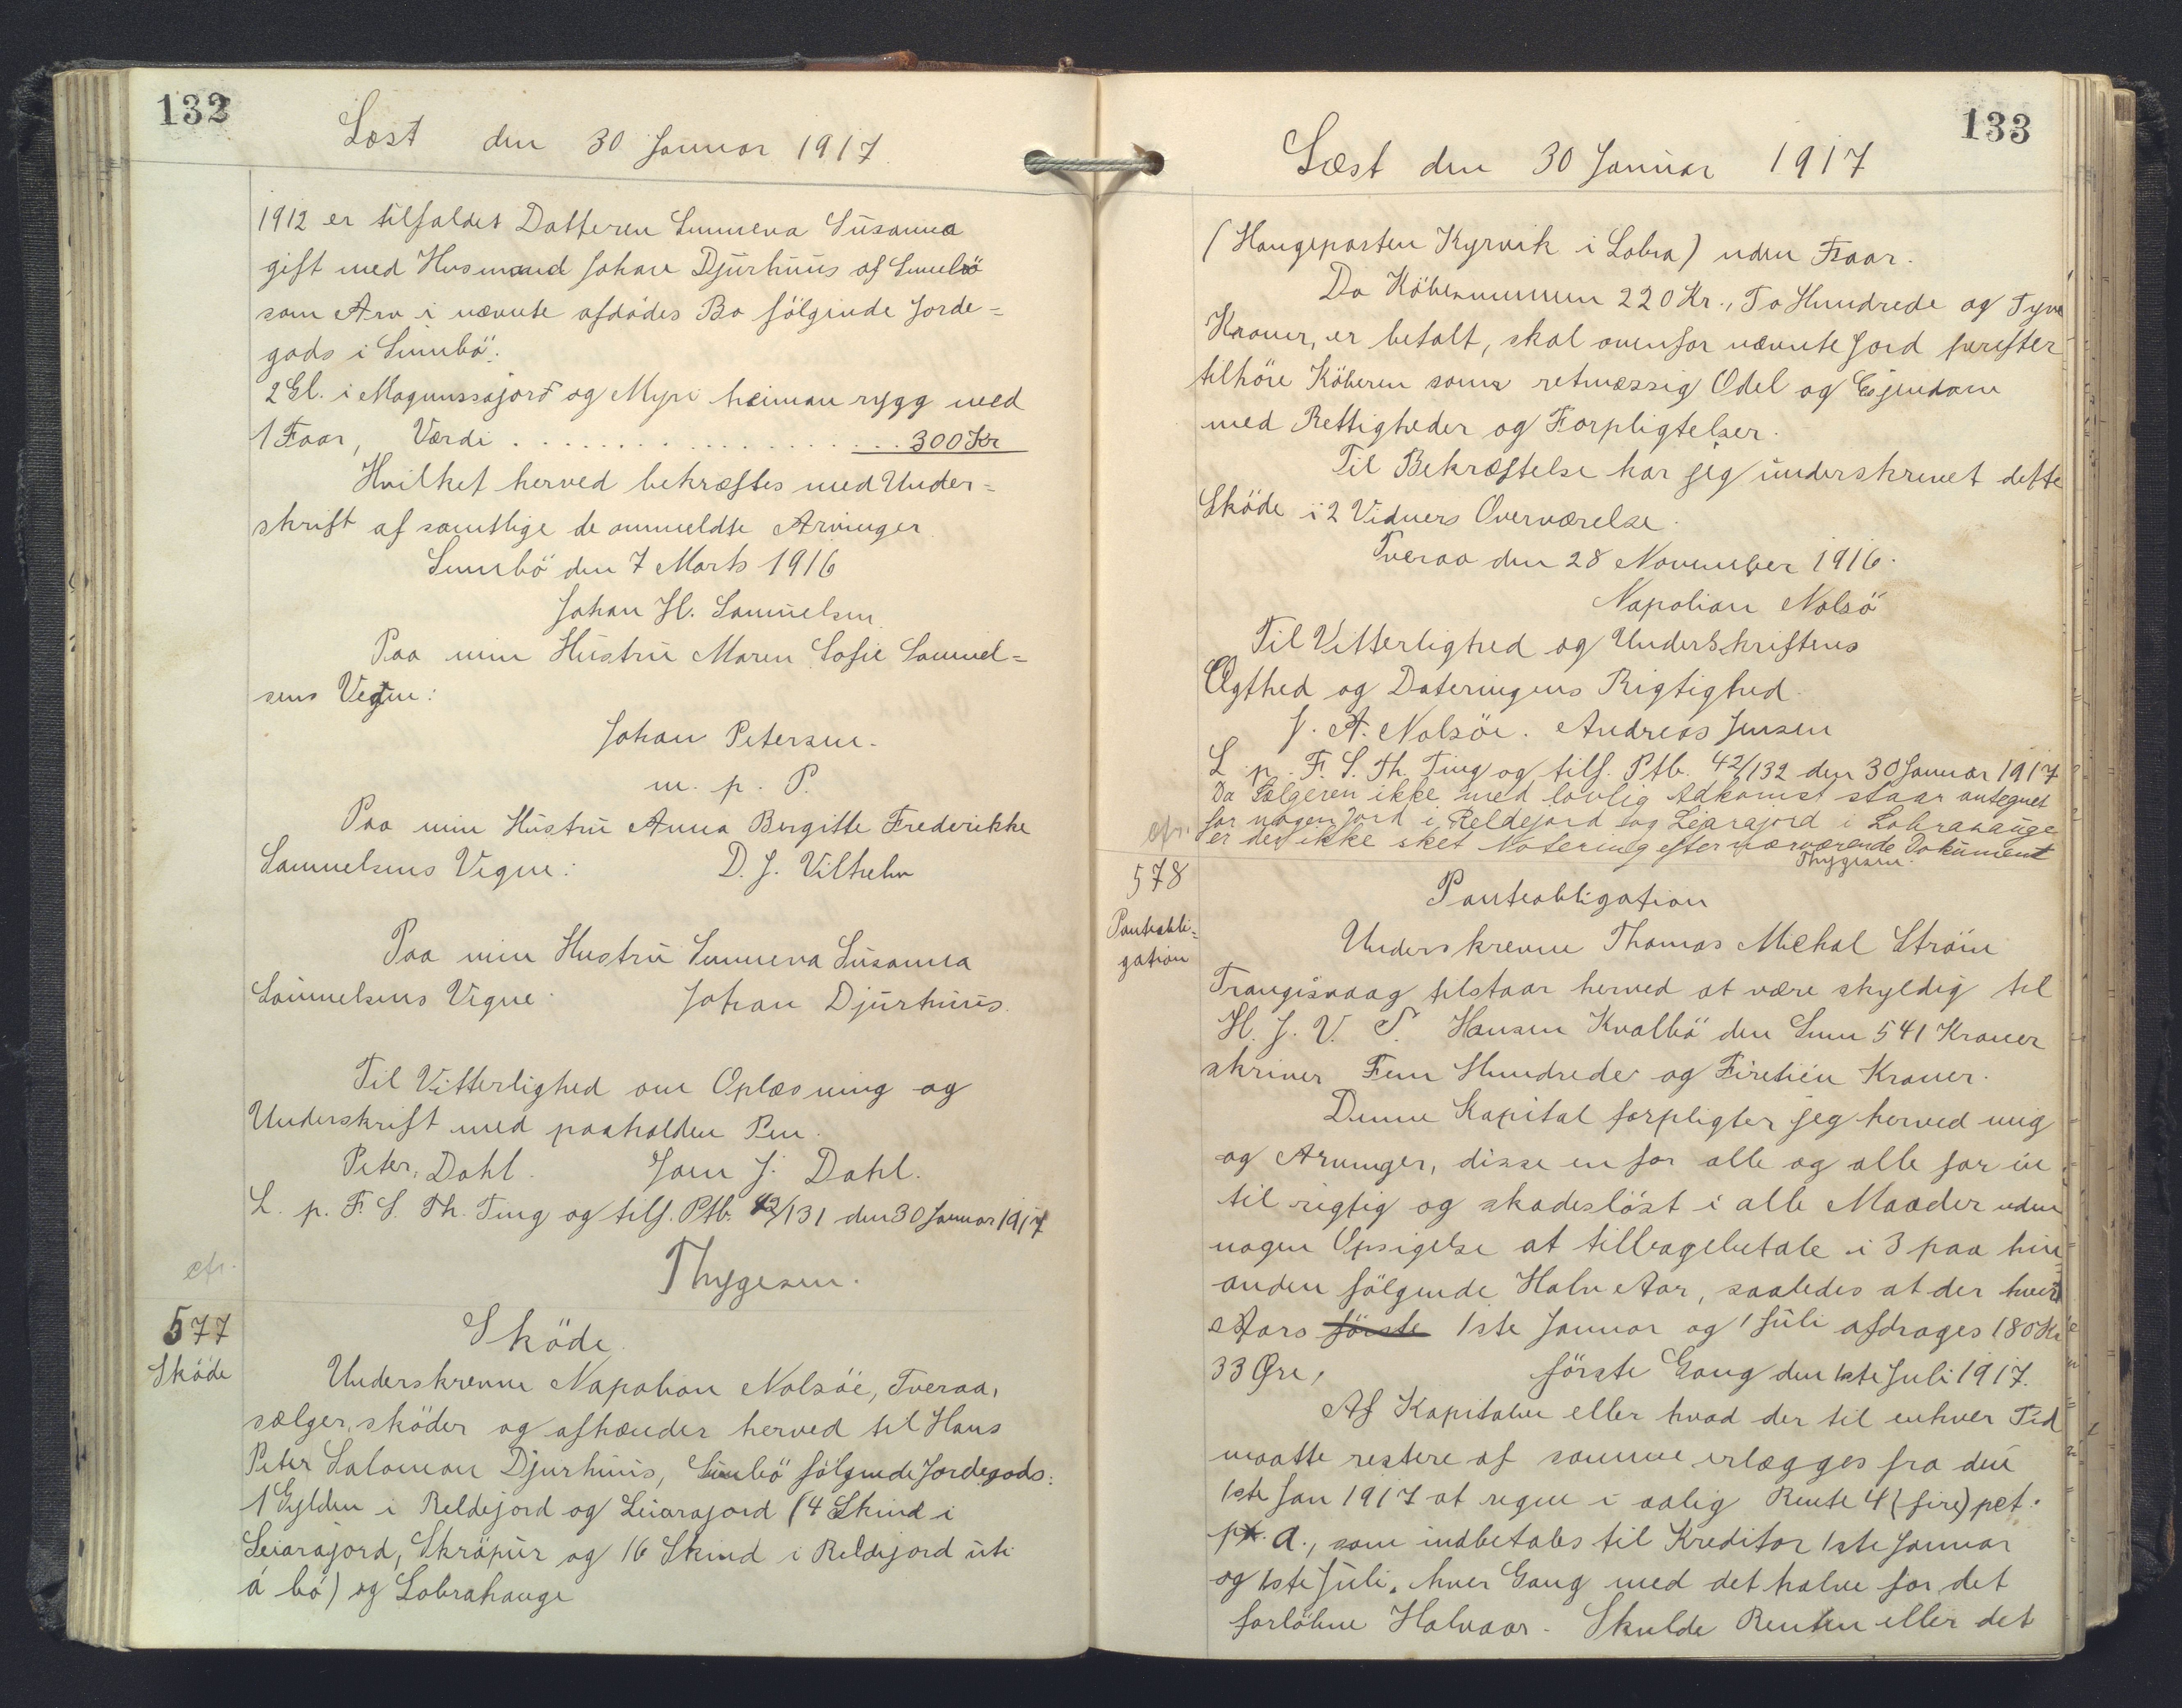 132
Læst den 30 Januar 1917.
1912 er tilfaldet Datteren Sunneva Susanna
gift med Husmand Johan Djurhuus af Sumbö
som Arv i nævnte afdödes Bo fölgende Jorde=
gods i Sumbö:
2 Gl. i Magnussajord og Myri heiman rygg med
1 Faar, Værdi . . . . . . . . . . . . . . . . . . 300 Kr
Hvilket herved bekræftes med Under=
skrift af samtlige de ommeldte Arvinger
Sumbö den 7 Marts 1916
Johan H. Samuelsen
Paa min Hustru Maren Sofie Samuel=
sens Vegne:
Johan Petersen.
m. p. P.
Paa min Hustru Anna Bergitte Frederikke
Samuelsens Vegne: D. J. Vilhelm
Paa min Hustru Sunneva Susanna
Samuelsens Vegne: Johan Djurhuus.
Til Vitterlighed om Oplæsning og
Underskrift med paaholden Pen.
Peter Dahl. Joen J. Dahl.
L. p. F. S. Th. Ting og tilf. Ptb. 42/131 den 30 Januar 1917
Thygesen.
cfr.
577
Sköde
Sköde
Underskrevne Napolion Nolsöe, Tveraa,
sælger, sköder og afhænder herved til Hans
Peter Salomon Djurhuus, Sumbö fölgende Jordegods:
1 Gylden i Reldejord og Leiarajord (4 Skind i
Leiarajord, Skräpur og 16 Skind i Reldejord uti
á bö) og Lobrahauge
133
Læst den 30 Januar 1917
(Haugeparten Kyrvik i Lobra) uden Faar.
Da Köbesummen 220 Kr., To Hundrede og Tyve
Kroner, er betalt, skal ovenfor nævnte Jord herefter
tilhöre Köberen som retmæssig Odel og Ejendom
med Rettigheder og Forpligtelser.
Til Bekræftelse har jeg underskrevet dette
Sköde i 2 Vidners Overværelse.
Tveraa den 28 November 1916.
Napolian Nolsö
Til Vitterlighed og Underskriftens
Ægthed og Dateringens Rigtighed.
J. A. Nolsöe. Andreas Jensen
L. p. F. S. Th. Ting og tilf. Ptb. 42/132 den 30 Januar 1917
Da Sælgeren ikke med lovlig Adkomst staar antegnet
for nogen Jord i Reldejord og Leiarajord i Lobrahauge
cfr. er der ikke sket Notering efter nærværende Dokument
Thygesen.
578
Panteobli=
gation
Panteobligation
Underskrevne Thomas Mickal Ström
Trangisvaag tilstaar herved at være skyldig til
H. J. V. P. Hansen Kvalbö den Sum 541 Kroner
skriver Fem Hundrede og Firetien Kroner.
Denne Kapital forpligter jeg herved mig
og Arvinger, disse en for alle og alle for en
til rigtig og skadeslöst i alle Maader uden
nogen Opsigelse at tilbagebetale i 3 paa hin=
anden fölgende Halv Aar, saaledes at der hvert
Aars förste 1ste Januar og 1 Juli afdrages 180 Kr
33 Øre, förste Gang den 1ste Juli 1917.
Af Kapitalen eller hvad der til enhver Tid
maatte restere af samme erlægges fra den
1ste Jan 1917 at regne i aalig Rente 4 (fire) pct.
p. a., som indbetales til Kreditor 1ste Januar
og 1ste Juli, hver Gang med det halve for det
forlöbne Halvaar. Skulde Renten eller det